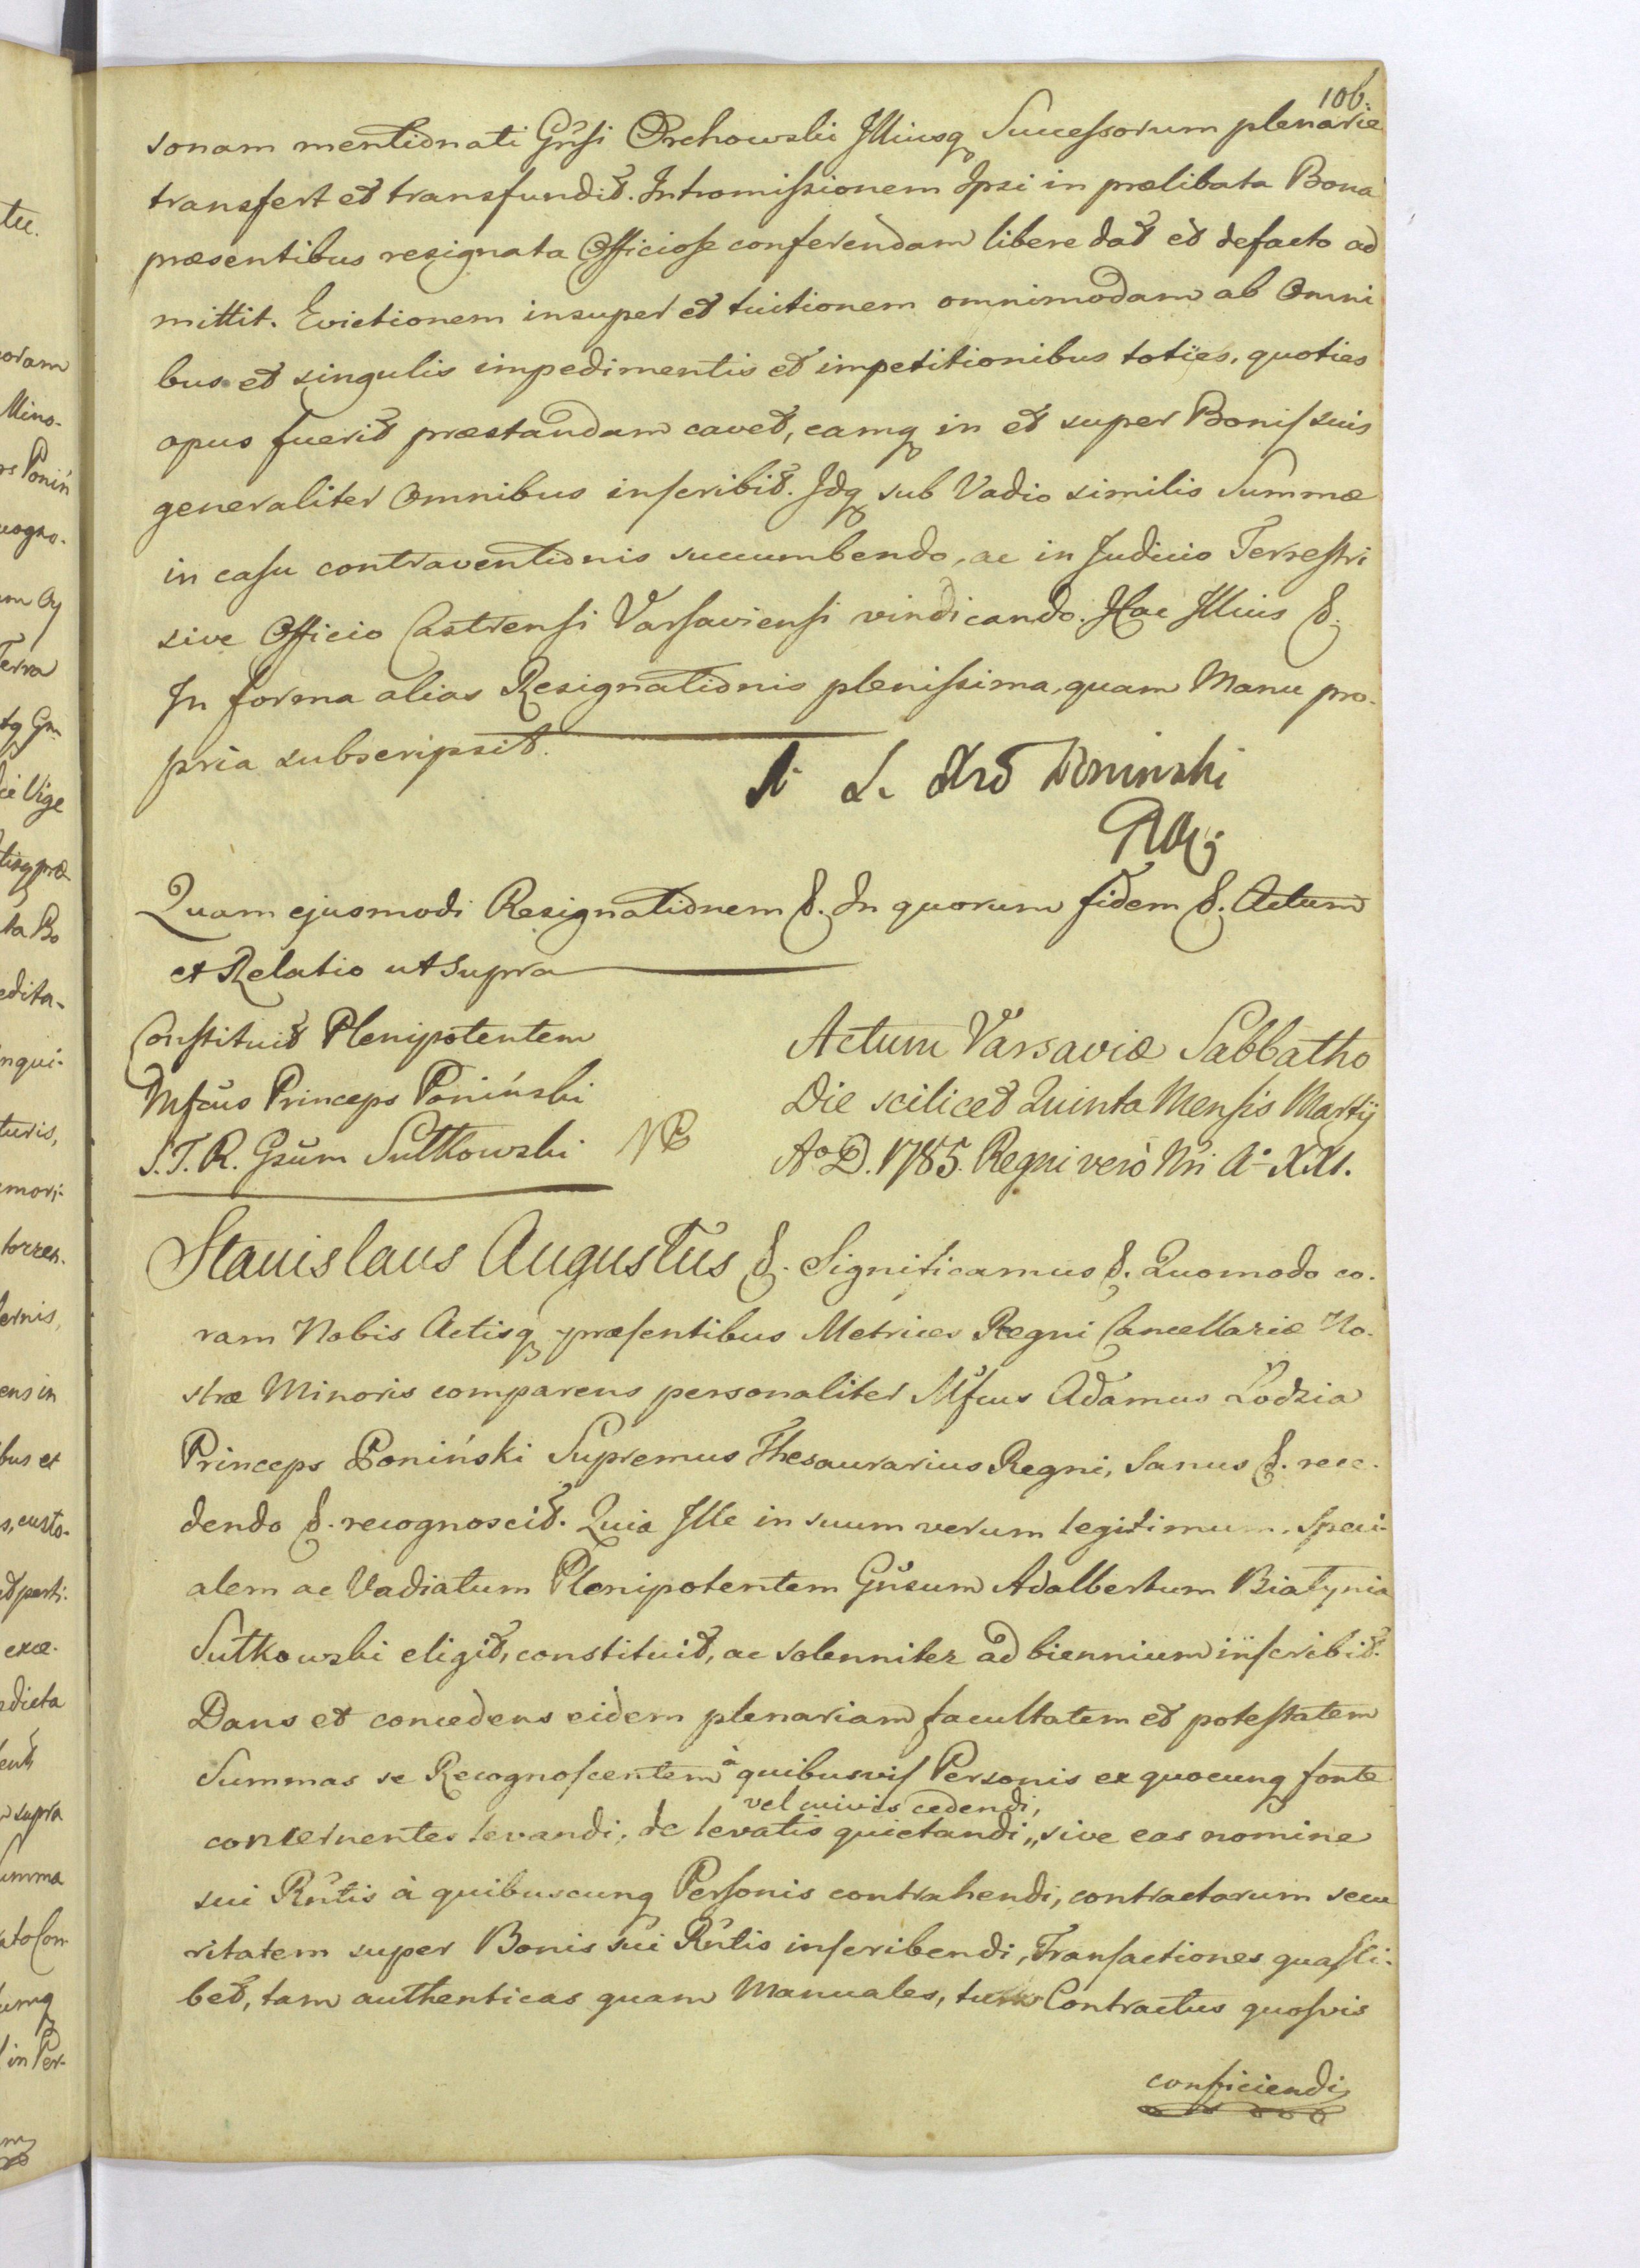 106.
sonam mentionati Gnsi Orchowski Illiusq Successorum plenarie
transfert et transfundit. Intromissionem Ipsi in prælibata Bona
præsentibus resignata Officiose conferendam libere dat et defacto ad
mittit. Evictionem insuper et tuitionem omnimodam ab Omni
bus et singulis impedimentis et impetitionibus toties, quoties
opus fuerit præstandam cavet, eamq in et super Bonis suis
generaliter Omnibus inscribit. Idq sub Vadio similis Summæ
in casu contraventionis succumbendo, ac in Judicio Terrestri
sive Officio Castrensi Varsaviensi vindicando. Hac Illius &.
In forma alias Resignationis plenissima, quam Manu pro-
pria subscripsit.
Poninski
Quam ejusmodi Resignationem &. In quorum fidem &. Actum
et Relatio ut supra
Constituit Plenipotentem
Mfcus Princeps Poniński
S.T.R. Gsum Sutkowski
Actum Varsaviæ Sabbatho
Die scilicet Quinta Mensis Martÿ
Ao D. 1785. Regni verò Nri Ao XXI.
Stanislaus Augustus &. Significamus &. Quomodo co-
ram Nobis Actisq præsentibus Metrices Regni Cancellariæ No-
stræ Minoris comparens personaliter Mfcus Adamus Lodzia
Princeps Poniński Supremus Thesaurarius Regni, Sanus &. rece-
dendo &. recognoscit. Quia Ille in suum verum legitimum, speci-
alem ac Vadiatum Plenipotentem Gnsum Adalbertum Białynia
Sutkowski eligit, constituit, ac solenniter ad biennium inscribit.
Dans et concedens eidem plenariam facultatem et potestatem
Summas se Recognoscentem à quibusvis Personis ex quocunq fonte
vel cuivis cedendi,
concernentes levandi, de levatis quietandi,, sive eas nomine
sui Rntis à quibuscunq Personis contrahendi, contractarum secu
ritatem super Bonis sui Rntis inscribendi, Transactiones quasli-
bet, tam authenticas quam Manuales, tum Contractus quosvis
conficiendi